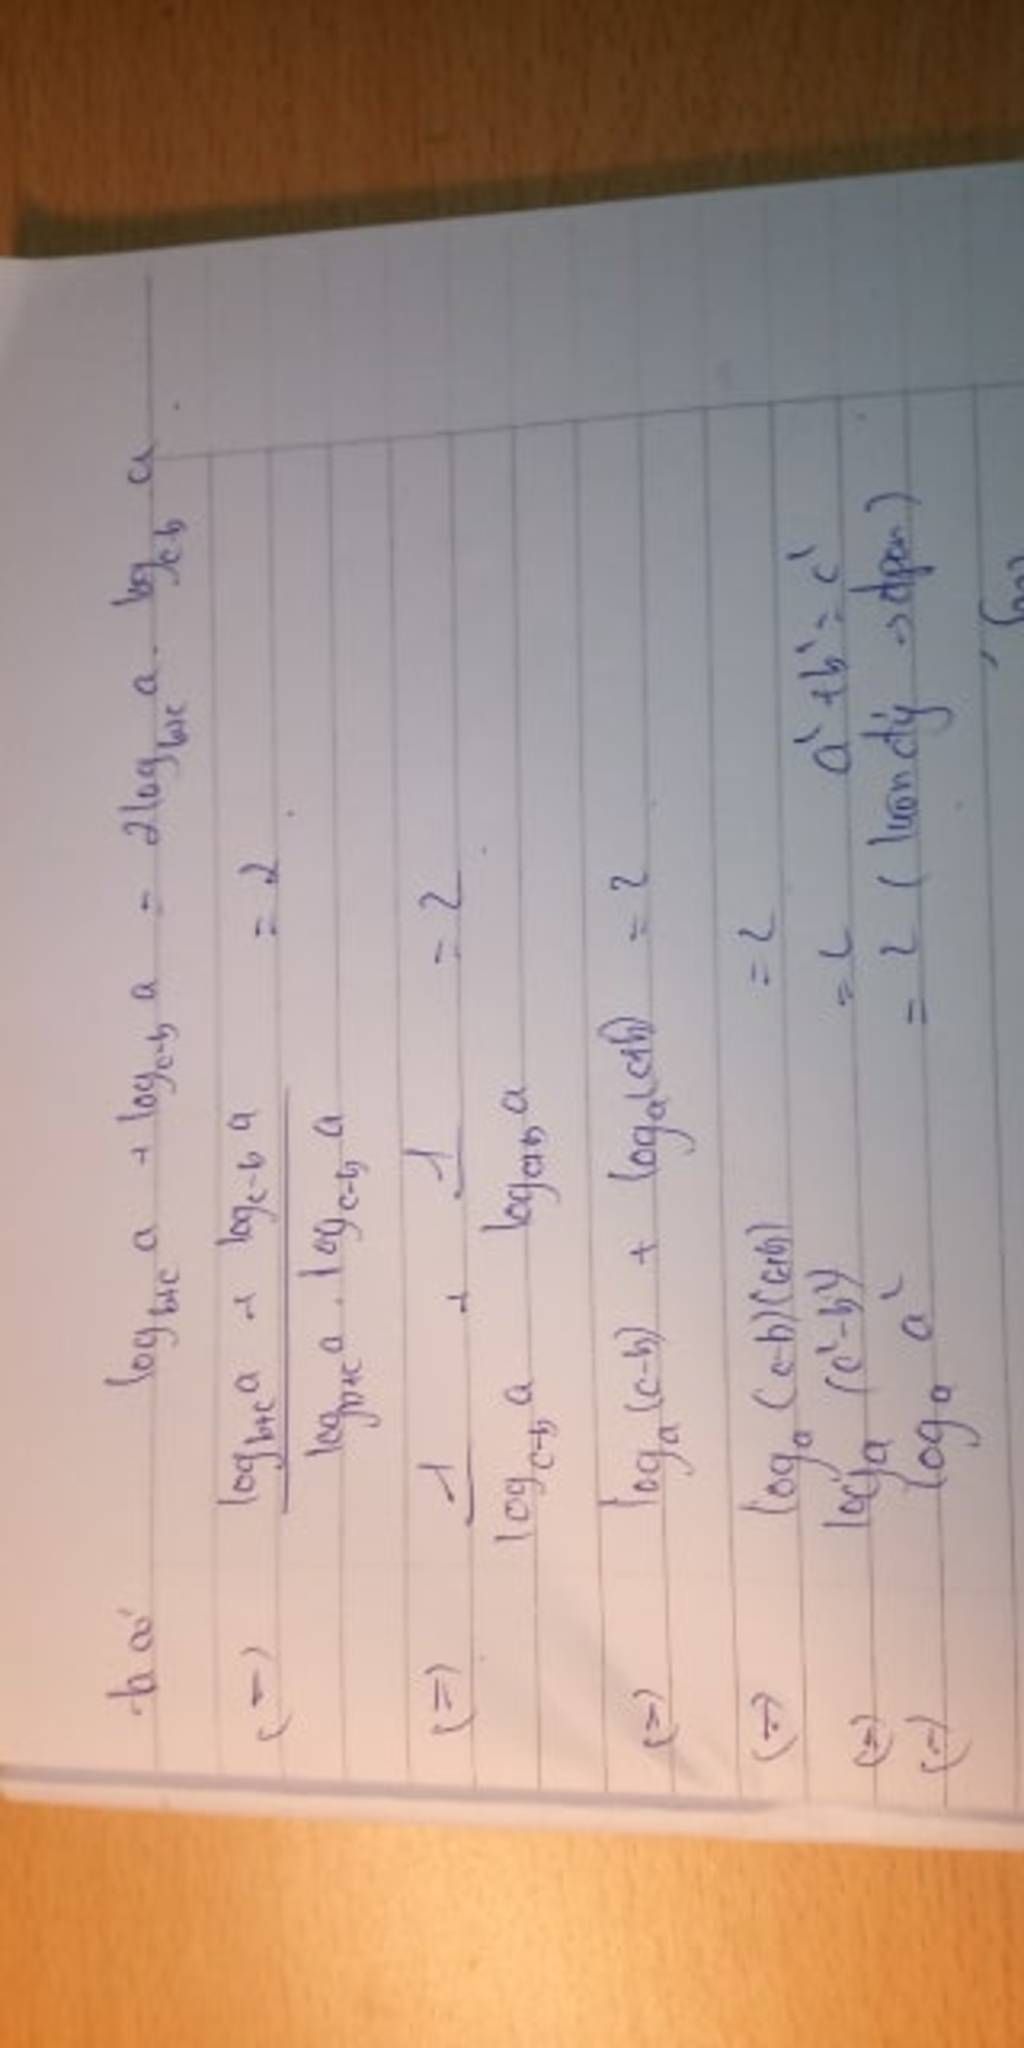 log_{b+c} a + log_{c-b} a = 2log_{b+c} a . log_{c-b} a
(=) \frac{log_{b+c} a + log_{c-b} a}{log_{b+c} a . log_{c-b} a} = 2
(=) \frac{1}{log_{c-b} a} + \frac{1}{log_{c+b} a} = 2
(=) log_a (c-b) + log_a (c+b) = 2
(=) log_a (c-b)(c+b) = 2
(=) log_a (c²-b²) = 2 a²+b²=c²
(=) log_a a² = 2 (luôn đúng → đpcm)